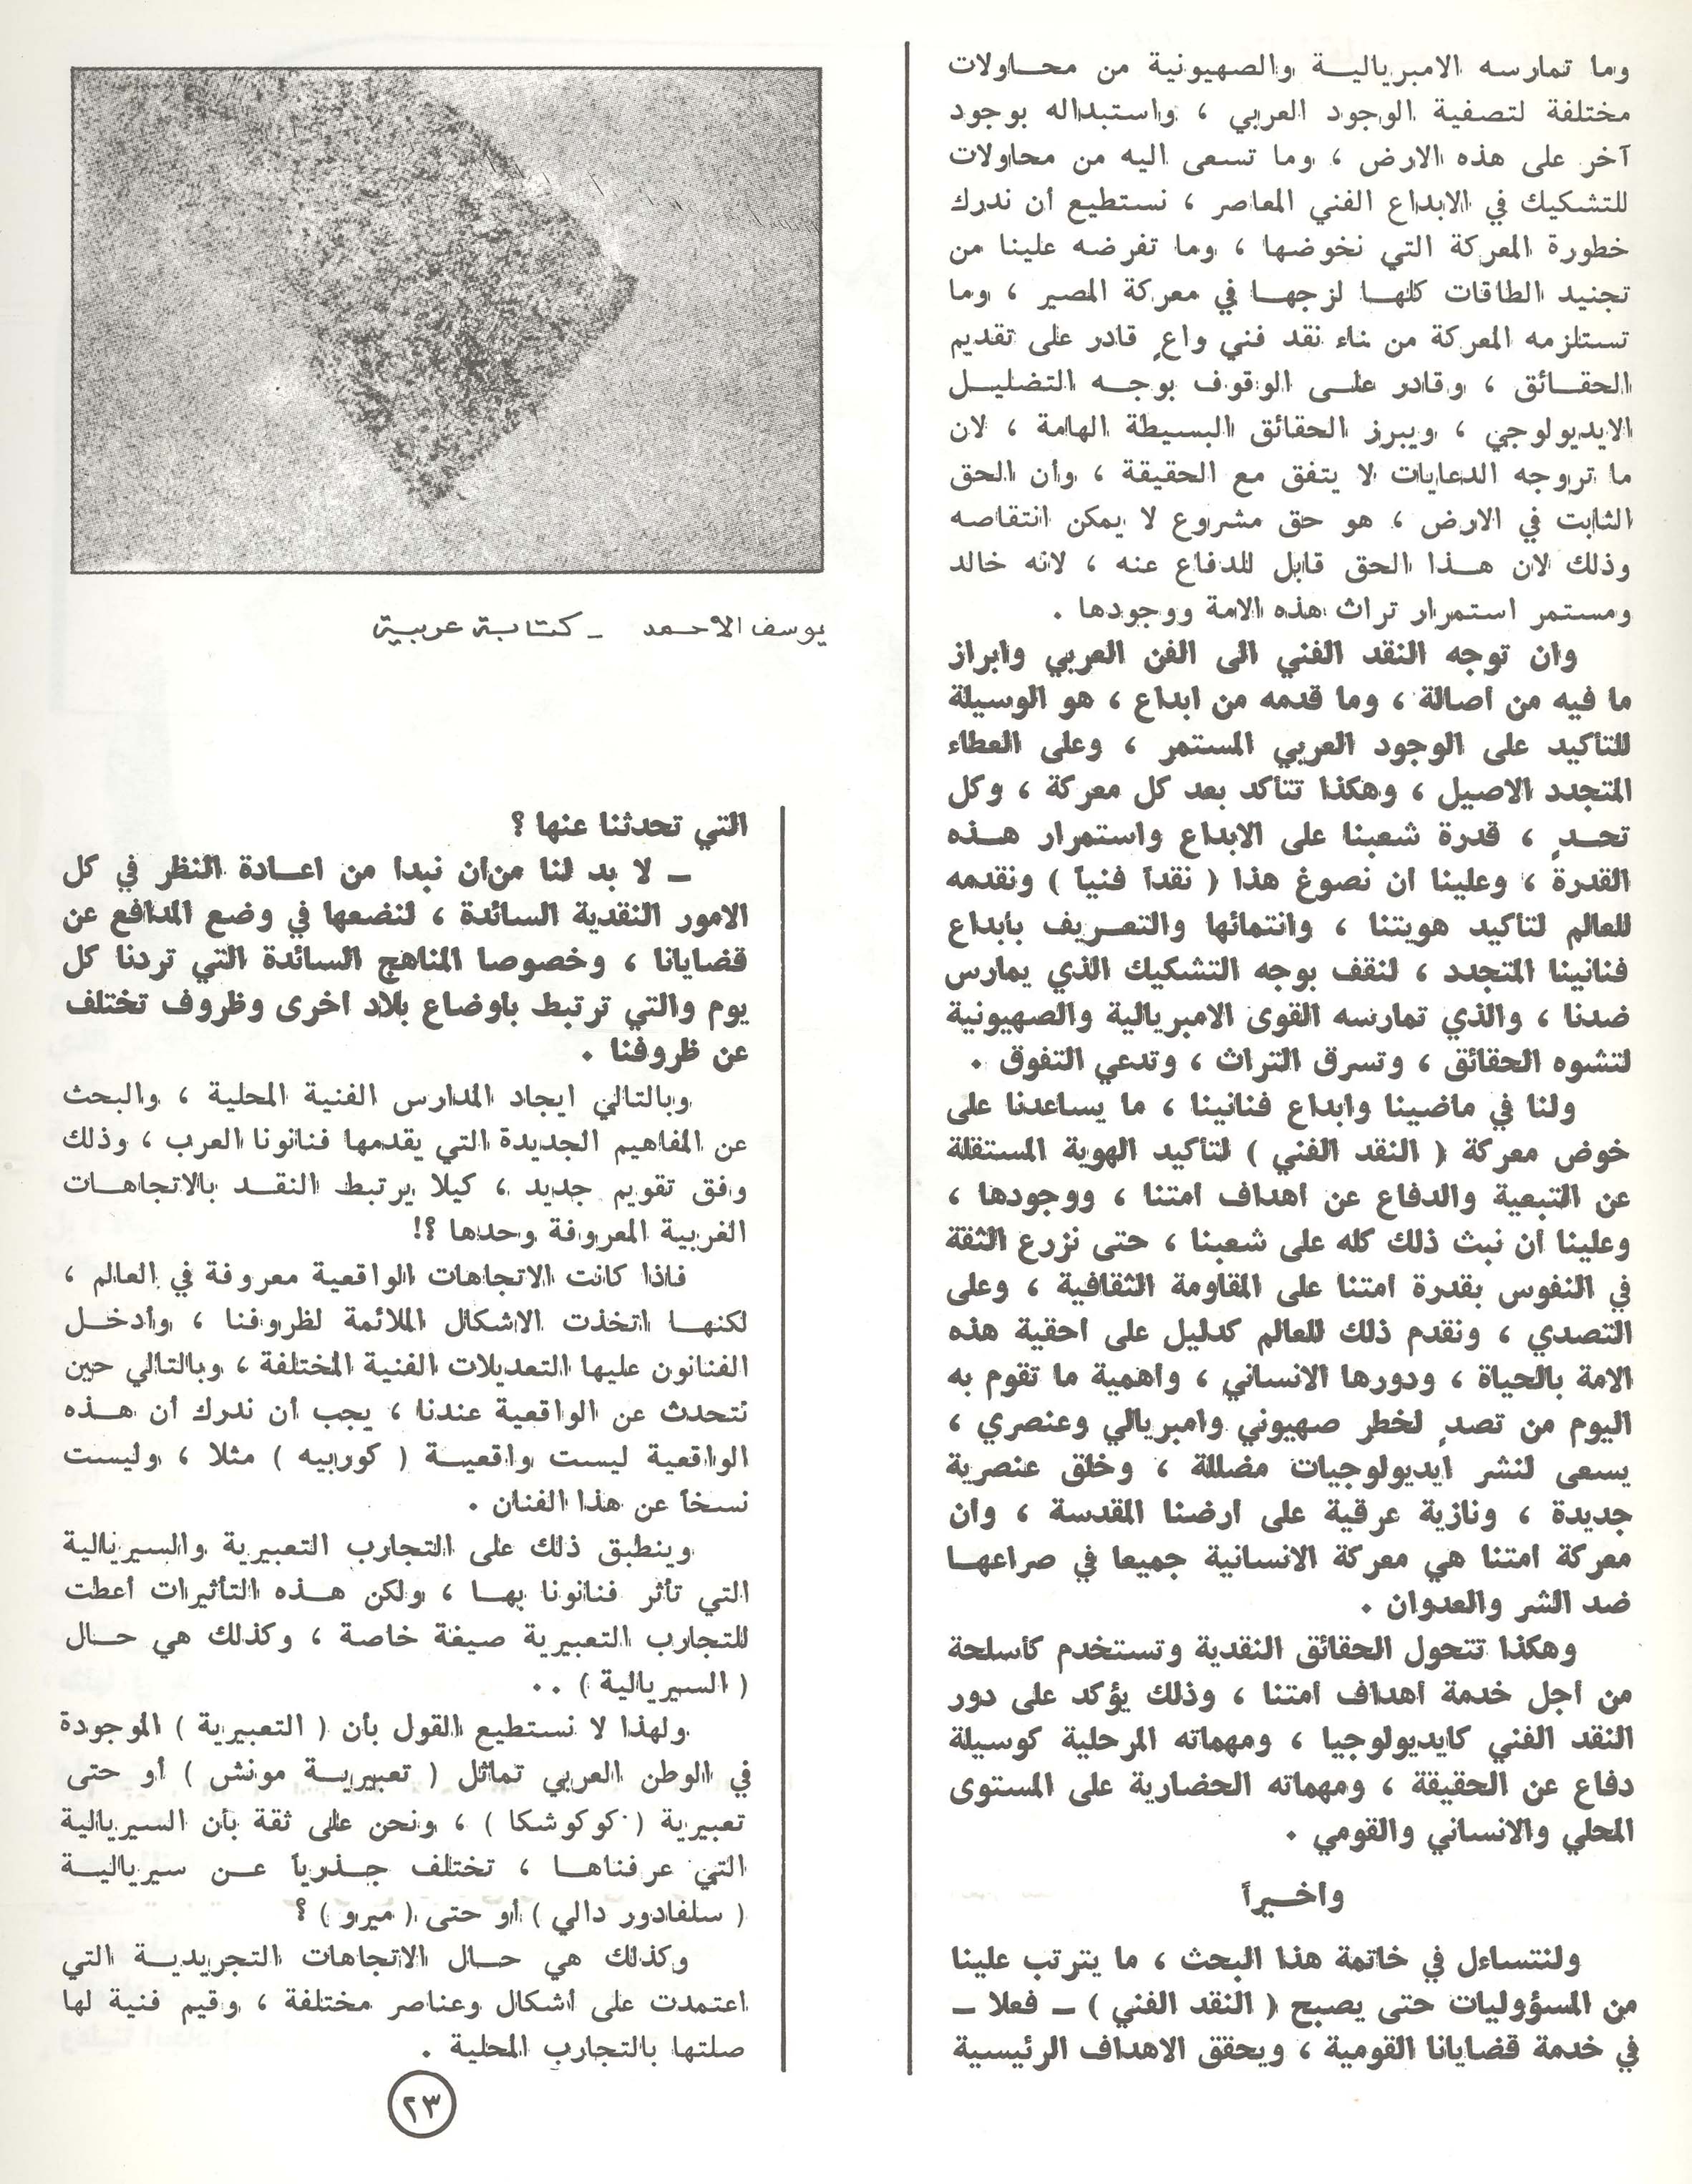 وما تمارسه الامبريالية والصهيونية من محاولات
مختلفة لتصفية الوجود العربي ، واستبداله بوجود
آخر على هذه الارض ، وما تسعى اليه من محاولات
للتشكيك في الابداع الفني المعاصر ، نستطيع أن ندرك
خطورة المعركة التي نخوضها ، وما تفرضه علينا من
تجنيد الطاقات كلها لزجها في معركة المصير ، وما
تستلزمه المعركة من بناء نقد فني واعٍ قادر على تقديم
الحقائق ، وقادر على الوقوف بوجه التضليل
الايديولوجي ، ويبرز الحقائق البسيطة الهامة ، لان
ما تروجه الدعايات لا يتفق مع الحقيقة ، وأن الحق
الثابت في الارض ، هو حق مشروع لا يمكن انتقاصه
وذلك لان هذا الحق قابل للدفاع عنه ، لانه خالد
ومستمر استمرار تراث هذه الامة ووجودها .
وان توجه النقد الفني الى الفن العربي وابراز
ما فيه من اصالة ، وما قدمه من ابداع ، هو الوسيلة
للتأكيد على الوجود العربي المستمر ، وعلى العطاء
المتجدد الاصيل ، وهكذا تتأكد بعد كل معركة ، وكل
تحدٍ ، قدرة شعبنا على الابداع واستمرار هذه
القدرة ، وعلينا ان نصوغ هذا ( نقداً فنياً ) ونقدمه
للعالم لتأكيد هويتنا ، وانتمائها والتعريف بأبداع
فنانينا المتجدد ، لنقف بوجه التشكيك الذي يمارس
ضدنا ، والذي تمارسه القوى الامبريالية والصهيونية
لتشوه الحقائق ، وتسرق التراث ، وتدعي التفوق .
ولنا في ماضينا وابداع فنانينا ، ما يساعدنا على
خوض معركة ( النقد الفني ) لتأكيد الهوية المستقلة
عن التبعية والدفاع عن اهداف امتنا ، ووجودها ،
وعلينا أن نبث ذلك كله على شعبنا ، حتى نزرع الثقة
في النفوس بقدرة امتنا على المقاومة الثقافية ، وعلى
التصدي ، ونقدم ذلك للعالم كدليل على احقية هذه
الامة بالحياة ، ودورها الانساني ، واهمية ما تقوم به
اليوم من تصدٍ لخطر صهيوني وامبريالي وعنصري ،
يسعى لنشر ايديولوجيات مضللة ، وخلق عنصرية
جديدة ، ونازية عرقية على ارضنا المقدسة ، وان
معركة امتنا هي معركة الانسانية جميعا في صراعها
ضد الشر والعدوان .
وهكذا تتحول الحقائق النقدية وتستخدم كأسلحة
من اجل خدمة أهداف امتنا ، وذلك يؤكد على دور
النقد الفني كايديولوجيا ، ومهماته المرحلية كوسيلة
دفاع عن الحقيقة ، ومهماته الحضارية على المستوى
المحلي والانساني والقومي .
واخيراً
ولنتساءل في خاتمة هذا البحث ، ما يترتب علينا
من المسؤوليات حتى يصبح ( النقد الفني ) – فعلا –
في خدمة قضايانا القومية ، ويحقق الاهداف الرئيسية
يوسف الأحمد - كتابة عربية
التي تحدثنا عنها ؟
– لا بد لنا من ان نبدا من اعادة النظر في كل
الامور النقدية السائدة ، لنضعها في وضع المدافع عن
قضايانا ، وخصوصا المناهج السائدة التي تردنا كل
يوم والتي ترتبط باوضاع بلاد اخرى وظروف تختلف
عن ظروفنا .
وبالتالي ايجاد المدارس الفنية المحلية ، والبحث
عن المفاهيم الجديدة التي يقدمها فنانونا العرب ، وذلك
وفق تقويم جديد ، كيلا يرتبط النقد بالاتجاهات
الغربية المعروفة وحدها ؟!
فاذا كانت الاتجاهات الواقعية معروفة في العالم ،
لكنها اتخذت الاشكال الملائمة لظروفنا ، وأدخل
الفنانون عليها التعديلات الفنية المختلفة ، وبالتالي حين
نتحدث عن الواقعية عندنا ، يجب أن ندرك أن هذه
الواقعية ليست واقعية ( كوربيه ) مثلا ، وليست
نسخاً عن هذا الفنان .
وينطبق ذلك على التجارب التعبيرية والسيريالية
التي تأثر فنانونا بها ، ولكن هذه التأثيرات أعطت
للتجارب التعبيرية صيغة خاصة ، وكذلك هي حال
( السيريالية ) . .
ولهذا لا نستطيع القول بأن ( التعبيرية ) الموجودة
في الوطن العربي تماثل ( تعبيرية مونش ) أو حتى
تعبيرية ( كوكوشكا ) ، ونحن على ثقة بأن السيريالية
التي عرفناها ، تختلف جذرياً عن سيريالية
( سلفادور دالي ) أو حتى ( ميرو ) ؟
وكذلك هي حال الاتجاهات التجريدية التي
اعتمدت على أشكال وعناصر مختلفة ، وقيم فنية لها
صلتها بالتجارب المحلية .
٢٣